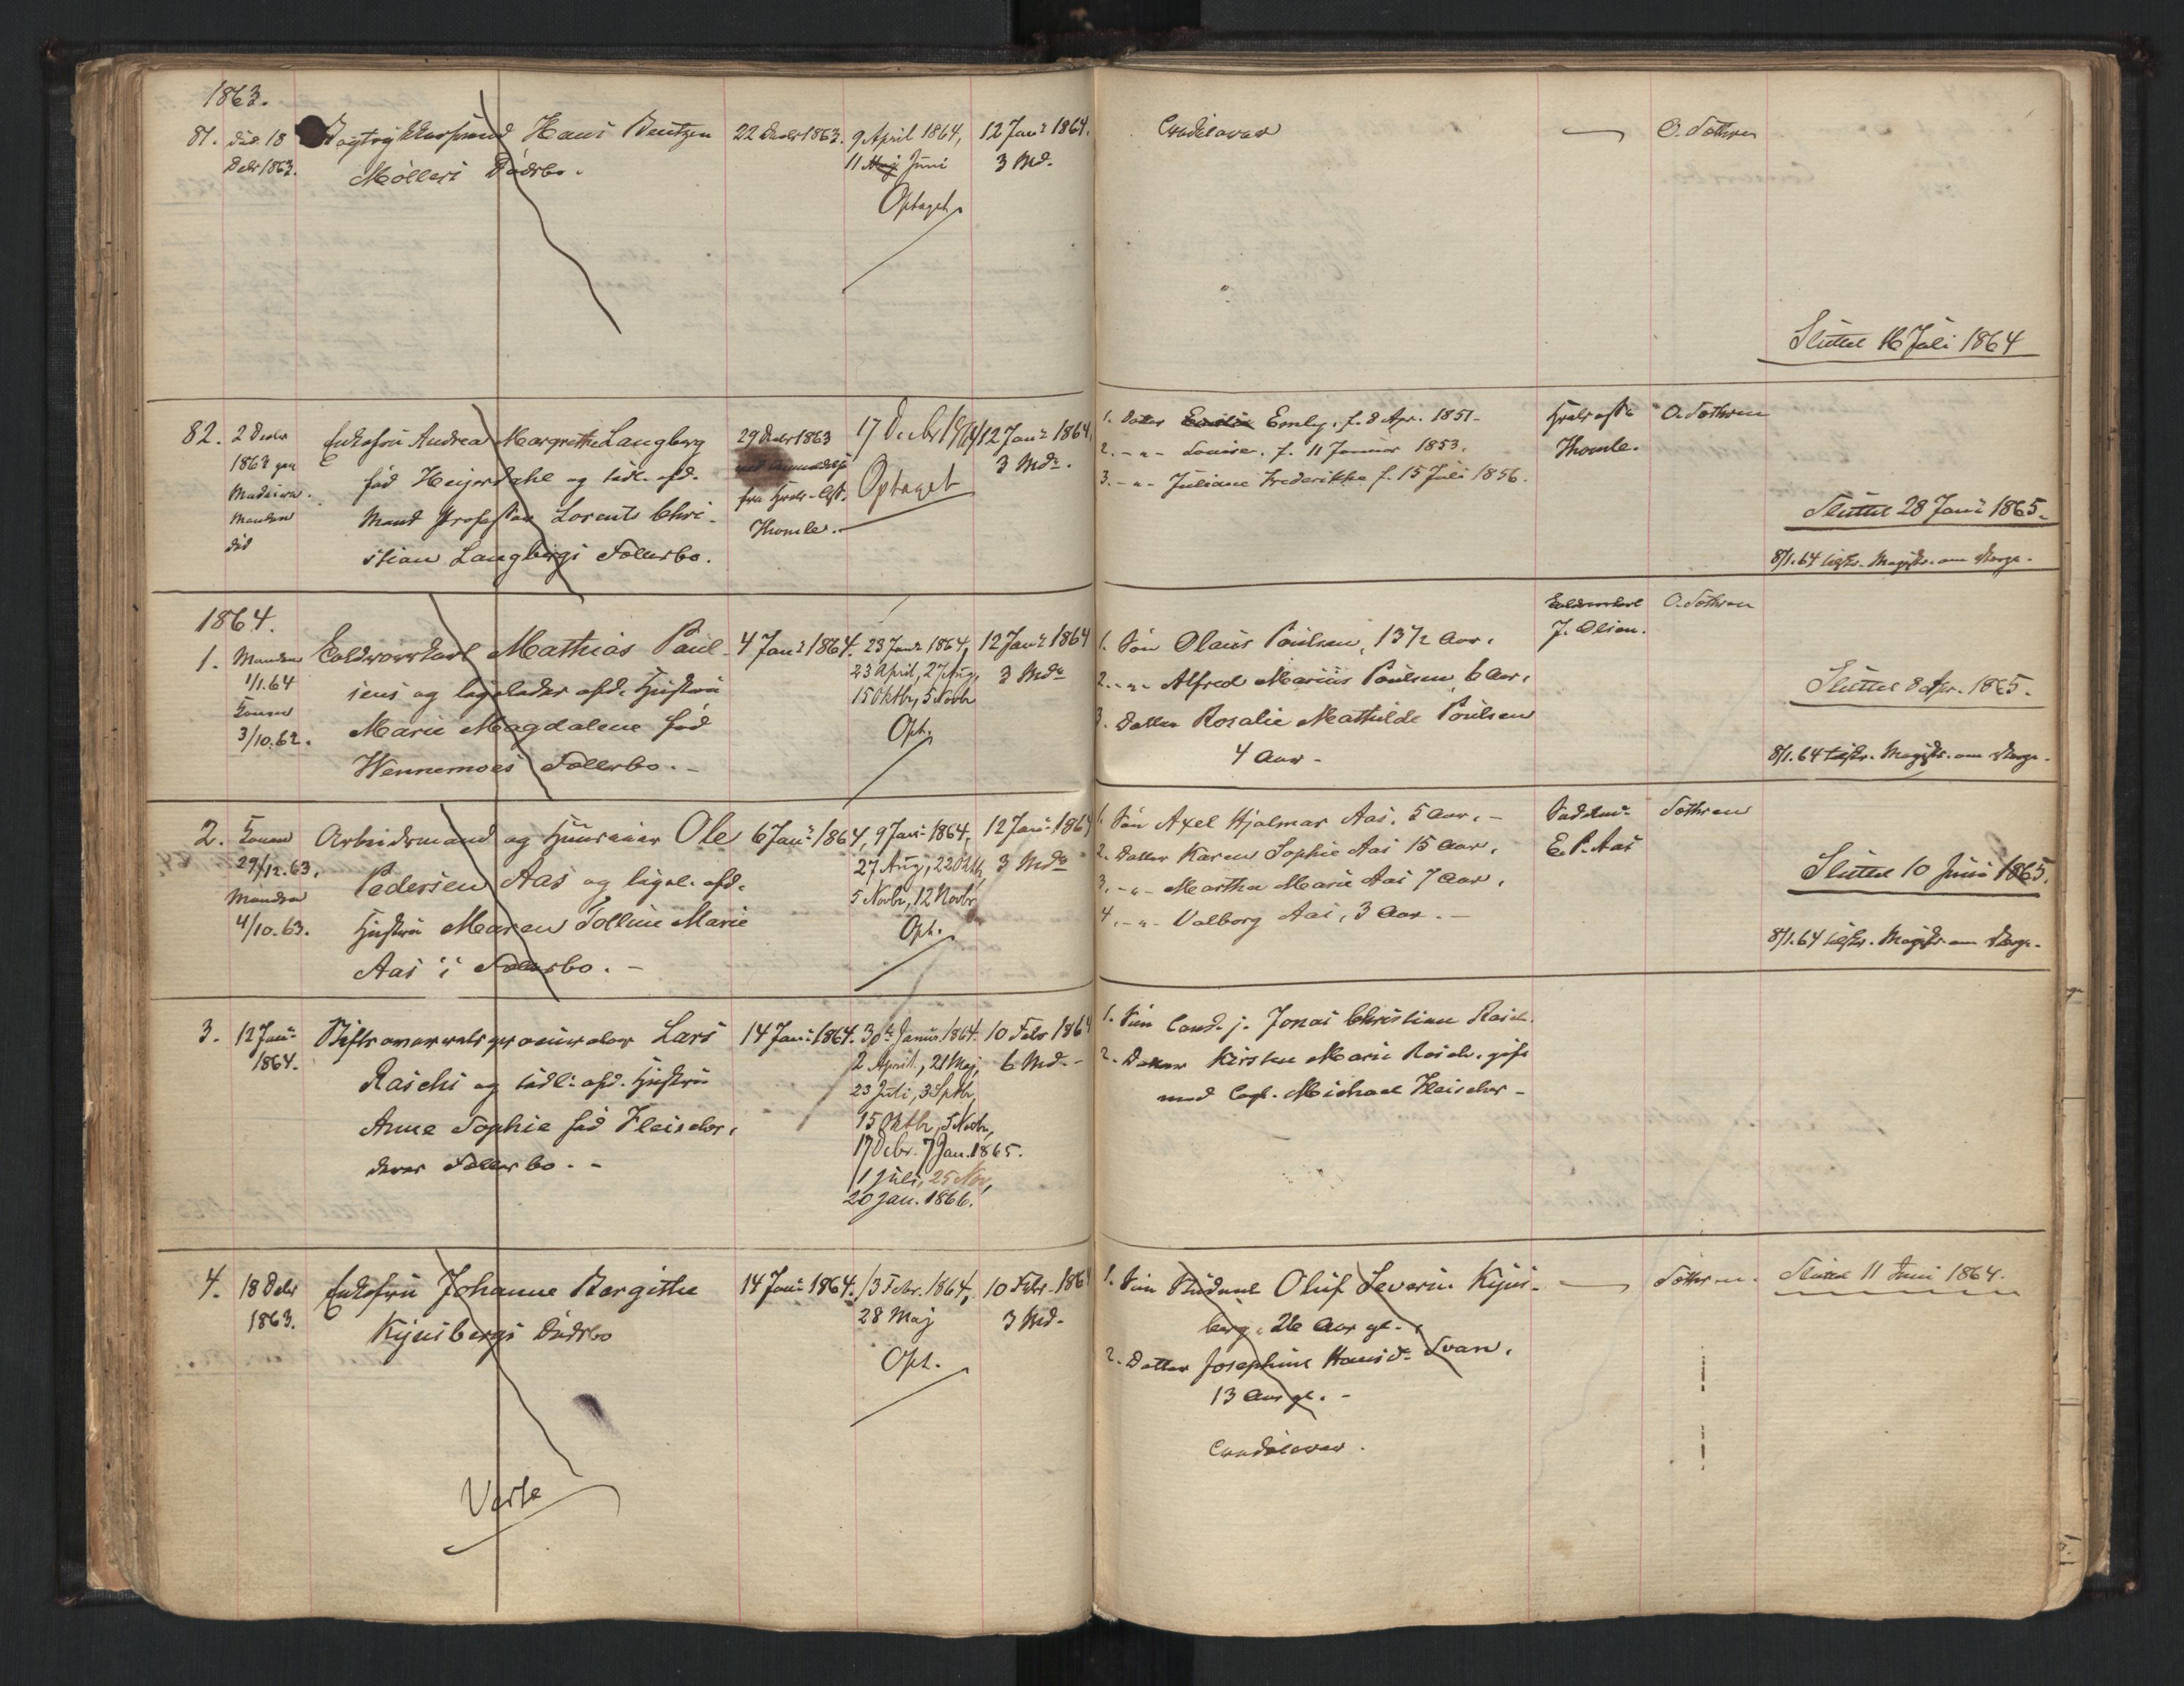 1863.
81. død 18 Decbr 1863.
Bogtrykkersvend Hans Bentzen
Möllers Dödsbo.
22 Decbr 1863.
9 April 1864,
11 Juni
Optaget
12 Janr 1864.
3 Md.
O. Sothren
Sluttet 16 Juli 1864
82. 2 Decbr
1863 paa
Madeira.
Manden
død
Enkefru Andrea Margrethe Langberg
fød Heijerdahl og tidl. afd.
Mand Professor Lorents Chri-
stian Langbergs Fællesbo.
29 Decbr 1863
fra
Thomle.
17 Decbr 1864
Optaget
12 Janr 1864.
3 Mdr.
1. Datter Emly, f. 8 Apr. 1851-
2. -"- Louise, f. 11 Januar 1853.
3. -"- Juliane Frederikke f. 15 Juli 1856.
Thomle.
O. Sothren
Sluttet 28 Jani 1865.
8/1.64 tilskr. Magistr. om Værge.
1864.
1. Manden
1/1.64
Konen
3/10.62.
Mathias Paul-
sens og ligeledes afd. Hustru
Marie Magdalene fød
Wennemoes Fællesbo. -
4 Janr 1864.
23 Janr 1864,
23 April, 27 Aug,
15 Oktbr, 5 Novbr
Opt.
12 Janr 1864
3 Mdr
1. Søn Olaus Poulsen, 13½ Aar.
2. -"- Alfred Marius Poulsen, 6 Aar.
3. Datter Rosalie Mathilde Poulsen
4 Aar -
J. Olsen.
O. Sothren
Sluttet 8 Apr. 1865.
8/1.64 tilskr. Magistr. om Værge.
2. Konen
29/12.63.
Manden
4/10.63.
Arbeidsmand og Huuseier Ole
Pedersen Aas og ligel. afd.
Hustru Maren Tolline Marie
Aas's Fællesbo. -
6 Janr 1864,
9 Janr 1864,
27 Aug, 22 Oktb,
5 Novbr, 12 Novbr
Opt.
12 Janr 1864
3 Mdr
1. Søn Axel Hjalmar Aas, 5 Aar. -
2. Datter Karen Sophie Aas 15 Aar.
3. -"- Marthe Marie Aas 7 Aar.
4. -"- Valborg Aas, 3 Aar. -
E. P. Aas
Sothren
Sluttet 10 Juni 1865.
8/1.64 tilskr. Magistr. om Værge.
3. 12 Janr
1864.
Lars
Raschs og tidl. afd. Hustru
Anne Sophie fød Fleischer,
deres Fællesbo. -
14 Janr 1864.
30te Januar 1864.
2 April, 21 Maj,
23 Juli, 3 Sptbr,
15 Oktbr, 5 Novbr,
17 Debr. 7 Jan. 1865.
1 Juli, 25 Nov,
20 Jan. 1866.
10 Febr 1864
6 Md. -
1. Søn Cand. j. Jonas Christian Rasch.
2. Datter Kirsten Marie Rasch, gift
med Capt. Michael Fleischer -
4. 18 Debr
1863.
Enkefru Johanne Bergithe
Kijnsbergs Dödsbo
14 Janr 1864.
13 Febr. 1864,
28 Maj
Opt.
10 Febr. 1864
3 Md.
1. Søn Student Oluf Severin Kijns-
berg, 26 Aar gl.
2. Datter Josephine Svan,
13 Aar gl. -
Sothren.
Sluttet 11 Juni 1864.
Verte